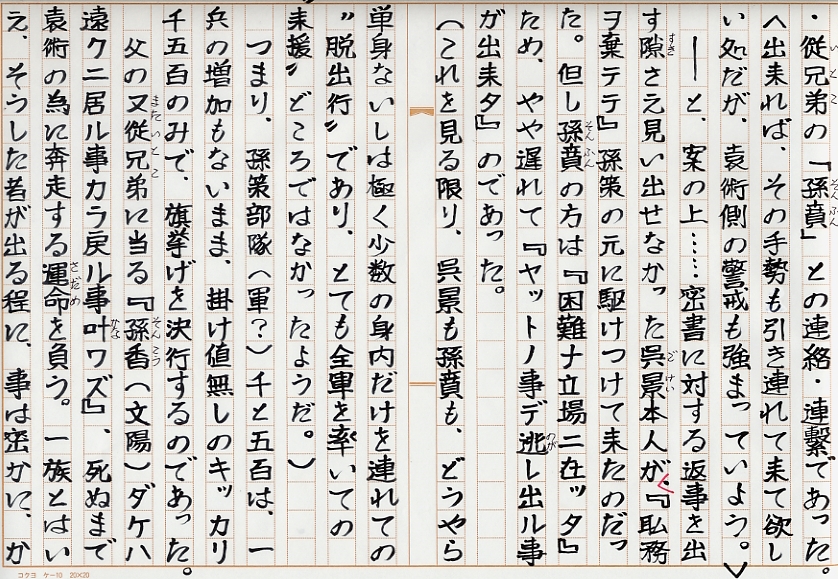 ・従兄弟の「孫賁」との連絡・連繋であった。
へ出来れば、その手勢も引き連れて来て欲し
い処だが、袁術側の警戒も強まっていよう。〉
──と、案の上……密書に対する返事を出
す隙さえ見い出せなかった呉景本人が、『私務
ヲ棄テテ』孫策の元に駆けつけて来たのだっ
た。但し孫賁の方は『困難ナ立場ニ在ッタ』
ため、やや遅れて『ヤットノ事デ逃レ出ル事
が出来タ』のであった。
(これを見る限り、呉景も孫賁も、どうやら
単身ないしは極く少数の身内だけを連れての
〝脱出行〟であり、とても全軍を率いての
来援〟どころではなかったようだ。)
つまり、孫策部隊(軍?)千と五百は、一
兵の増加もないまま、掛け値無しのキッカリ
千五百のみで、旗挙げを決行するのであった。
父の又従兄弟に当る『孫香(文陽)ダケハ
遠クニ居ル事カラ戻ル事叶ワズ』、死ぬまで
袁術の為に奔走する運命を負う。一族とはい
え、そうした者が出る程に、事は密かに、か
コクヨ ケー10 20×20